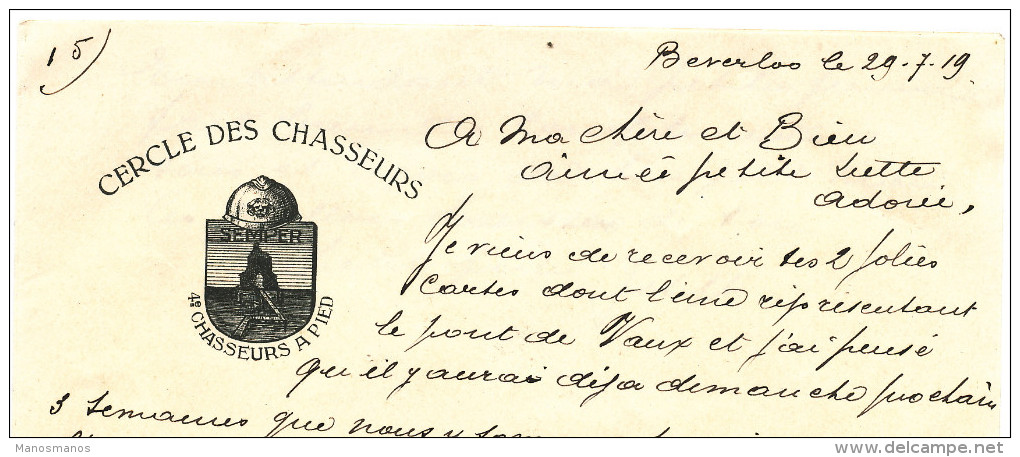 15)
Beverloo le 29-7-19
CERCLE DES CHASSEURS
SEMPER
4e CHASSEURS A PIED
A Ma chère et Bien
aimée petite
adorée,
Je viens de recevoir tes 2 jolies
cartes dont l'une représentant
le pont de Vaux et j'ai pensé
qu'il y aurai déja dimanche prochain
3 semaines que nous y
Manosmanos
delcampe.net